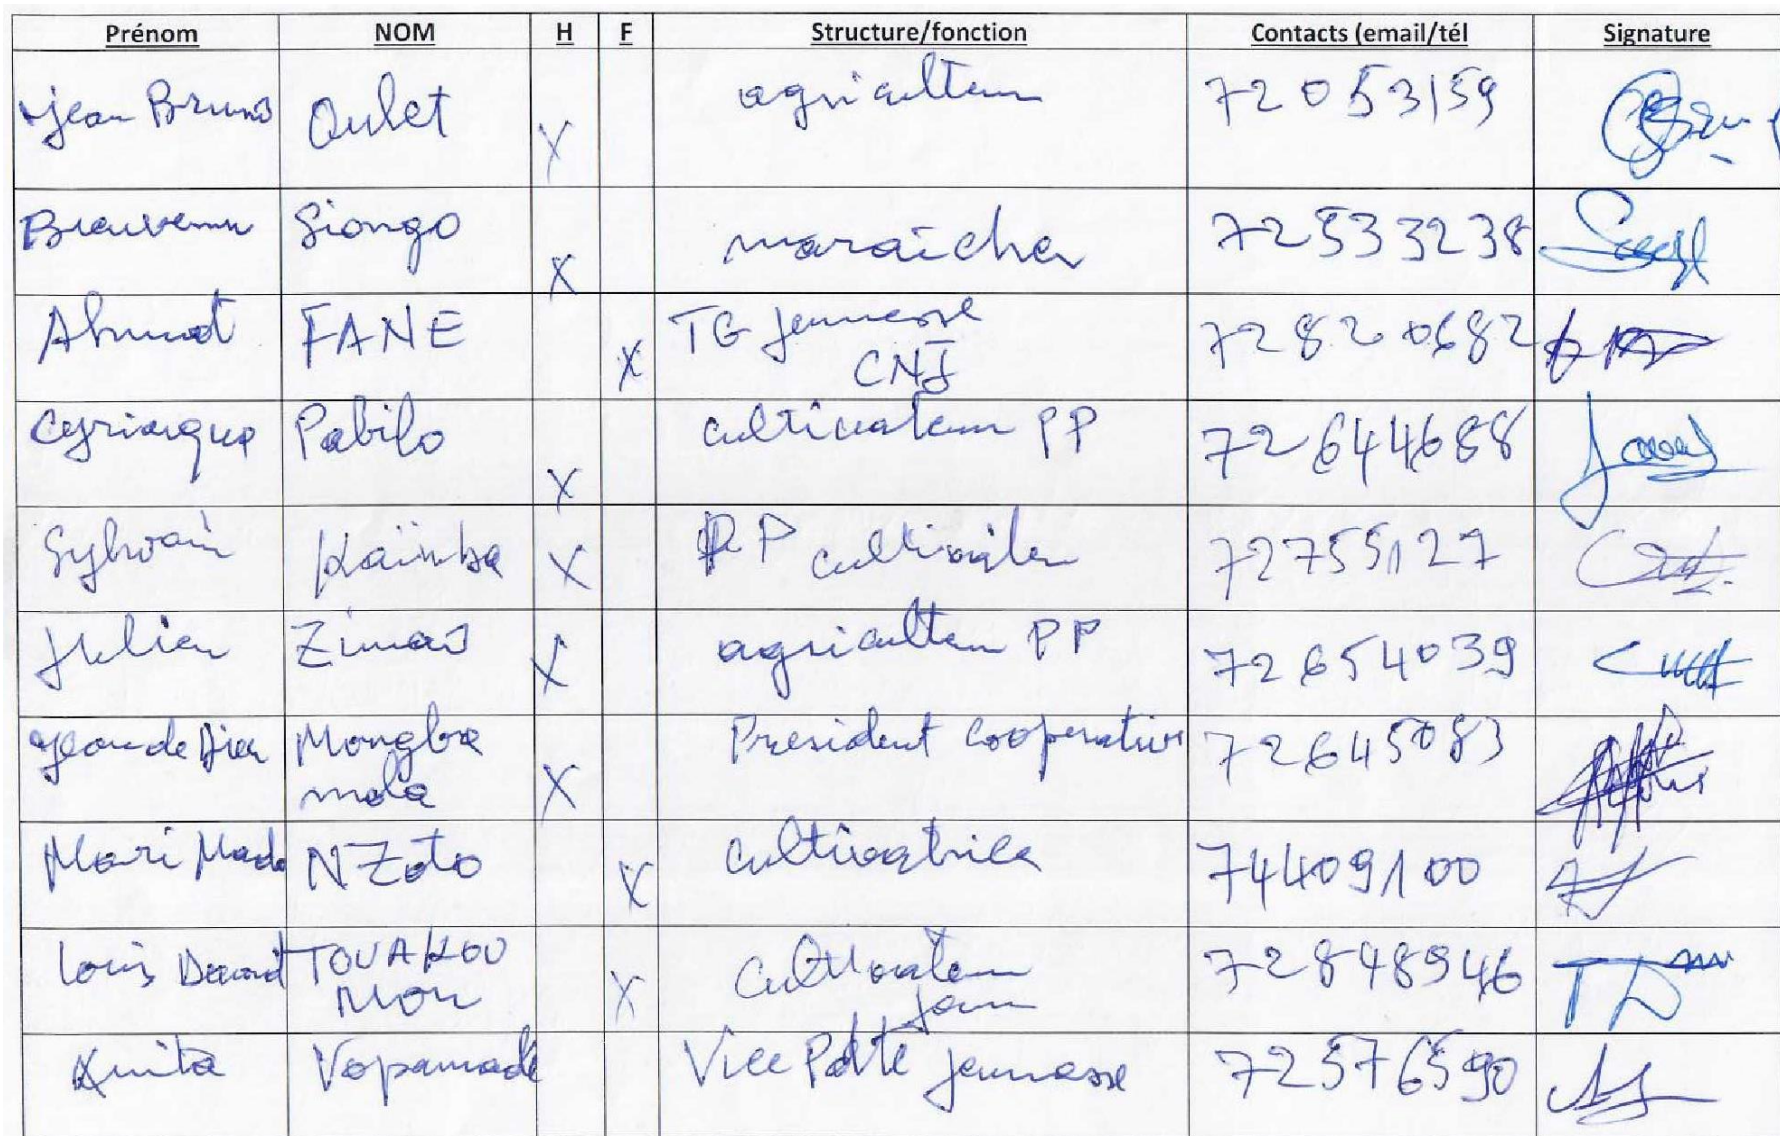 Prénom NOM H F Structure/fonction Contacts (email/tél Signature
Jean Bruno Oulet X agriculteur 72053159
Bienvenu Siongo X maraîcher 72533238
Ahmat FANE X TG jeunesse 72820682
CNJ
Cyriaque Pabilo X cultivateur PP 72644688
Sylvain Kaïmba X PP cultivateur 72755127
Julien Zimao X agriculteur PP 72654039
Jean de Dieu Mongba X President Cooperative 72645083
mola
Mari Made NZoto X cultivatrice 74409100
Louis TOUAKOU X Cultivateur 72848946
Vice Pdte jeunesse 72576590